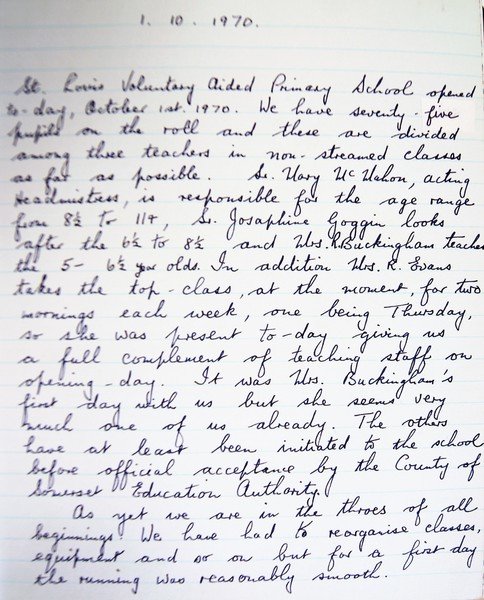 1. 10. 1970.
St. Louis Voluntary Aided Primary School opened
to-day, October 1st. 1970. We have seventy-five
pupils on the roll and these are divided
among three teachers in non-streamed classes
as far as possible. Sr. Mary Mc Mahon, acting
Headmistress, is responsible for the age range
from 8½ to 11+, Sr. Josaphine Goggin looks
after the 6½ to 8½ and Mrs. R. Buckingham teaches
the 5 - 6½ year olds. In addition Mrs. R. Evans
takes the top-class, at the moment, for two
mornings each week, one being Thursday,
so she was present to-day giving us
a full complement of teaching staff on
opening-day. It was Mrs. Buckingham's
first day with us but she seems very
much one of us already. The others
have at least been initiated to the school
before official acceptance by the County of
Somerset Education Authority.
As yet we are in the throes of all
beginnings. We have had to reorganise classes,
equipment and so on but for a first day
the running was reasonably smooth.